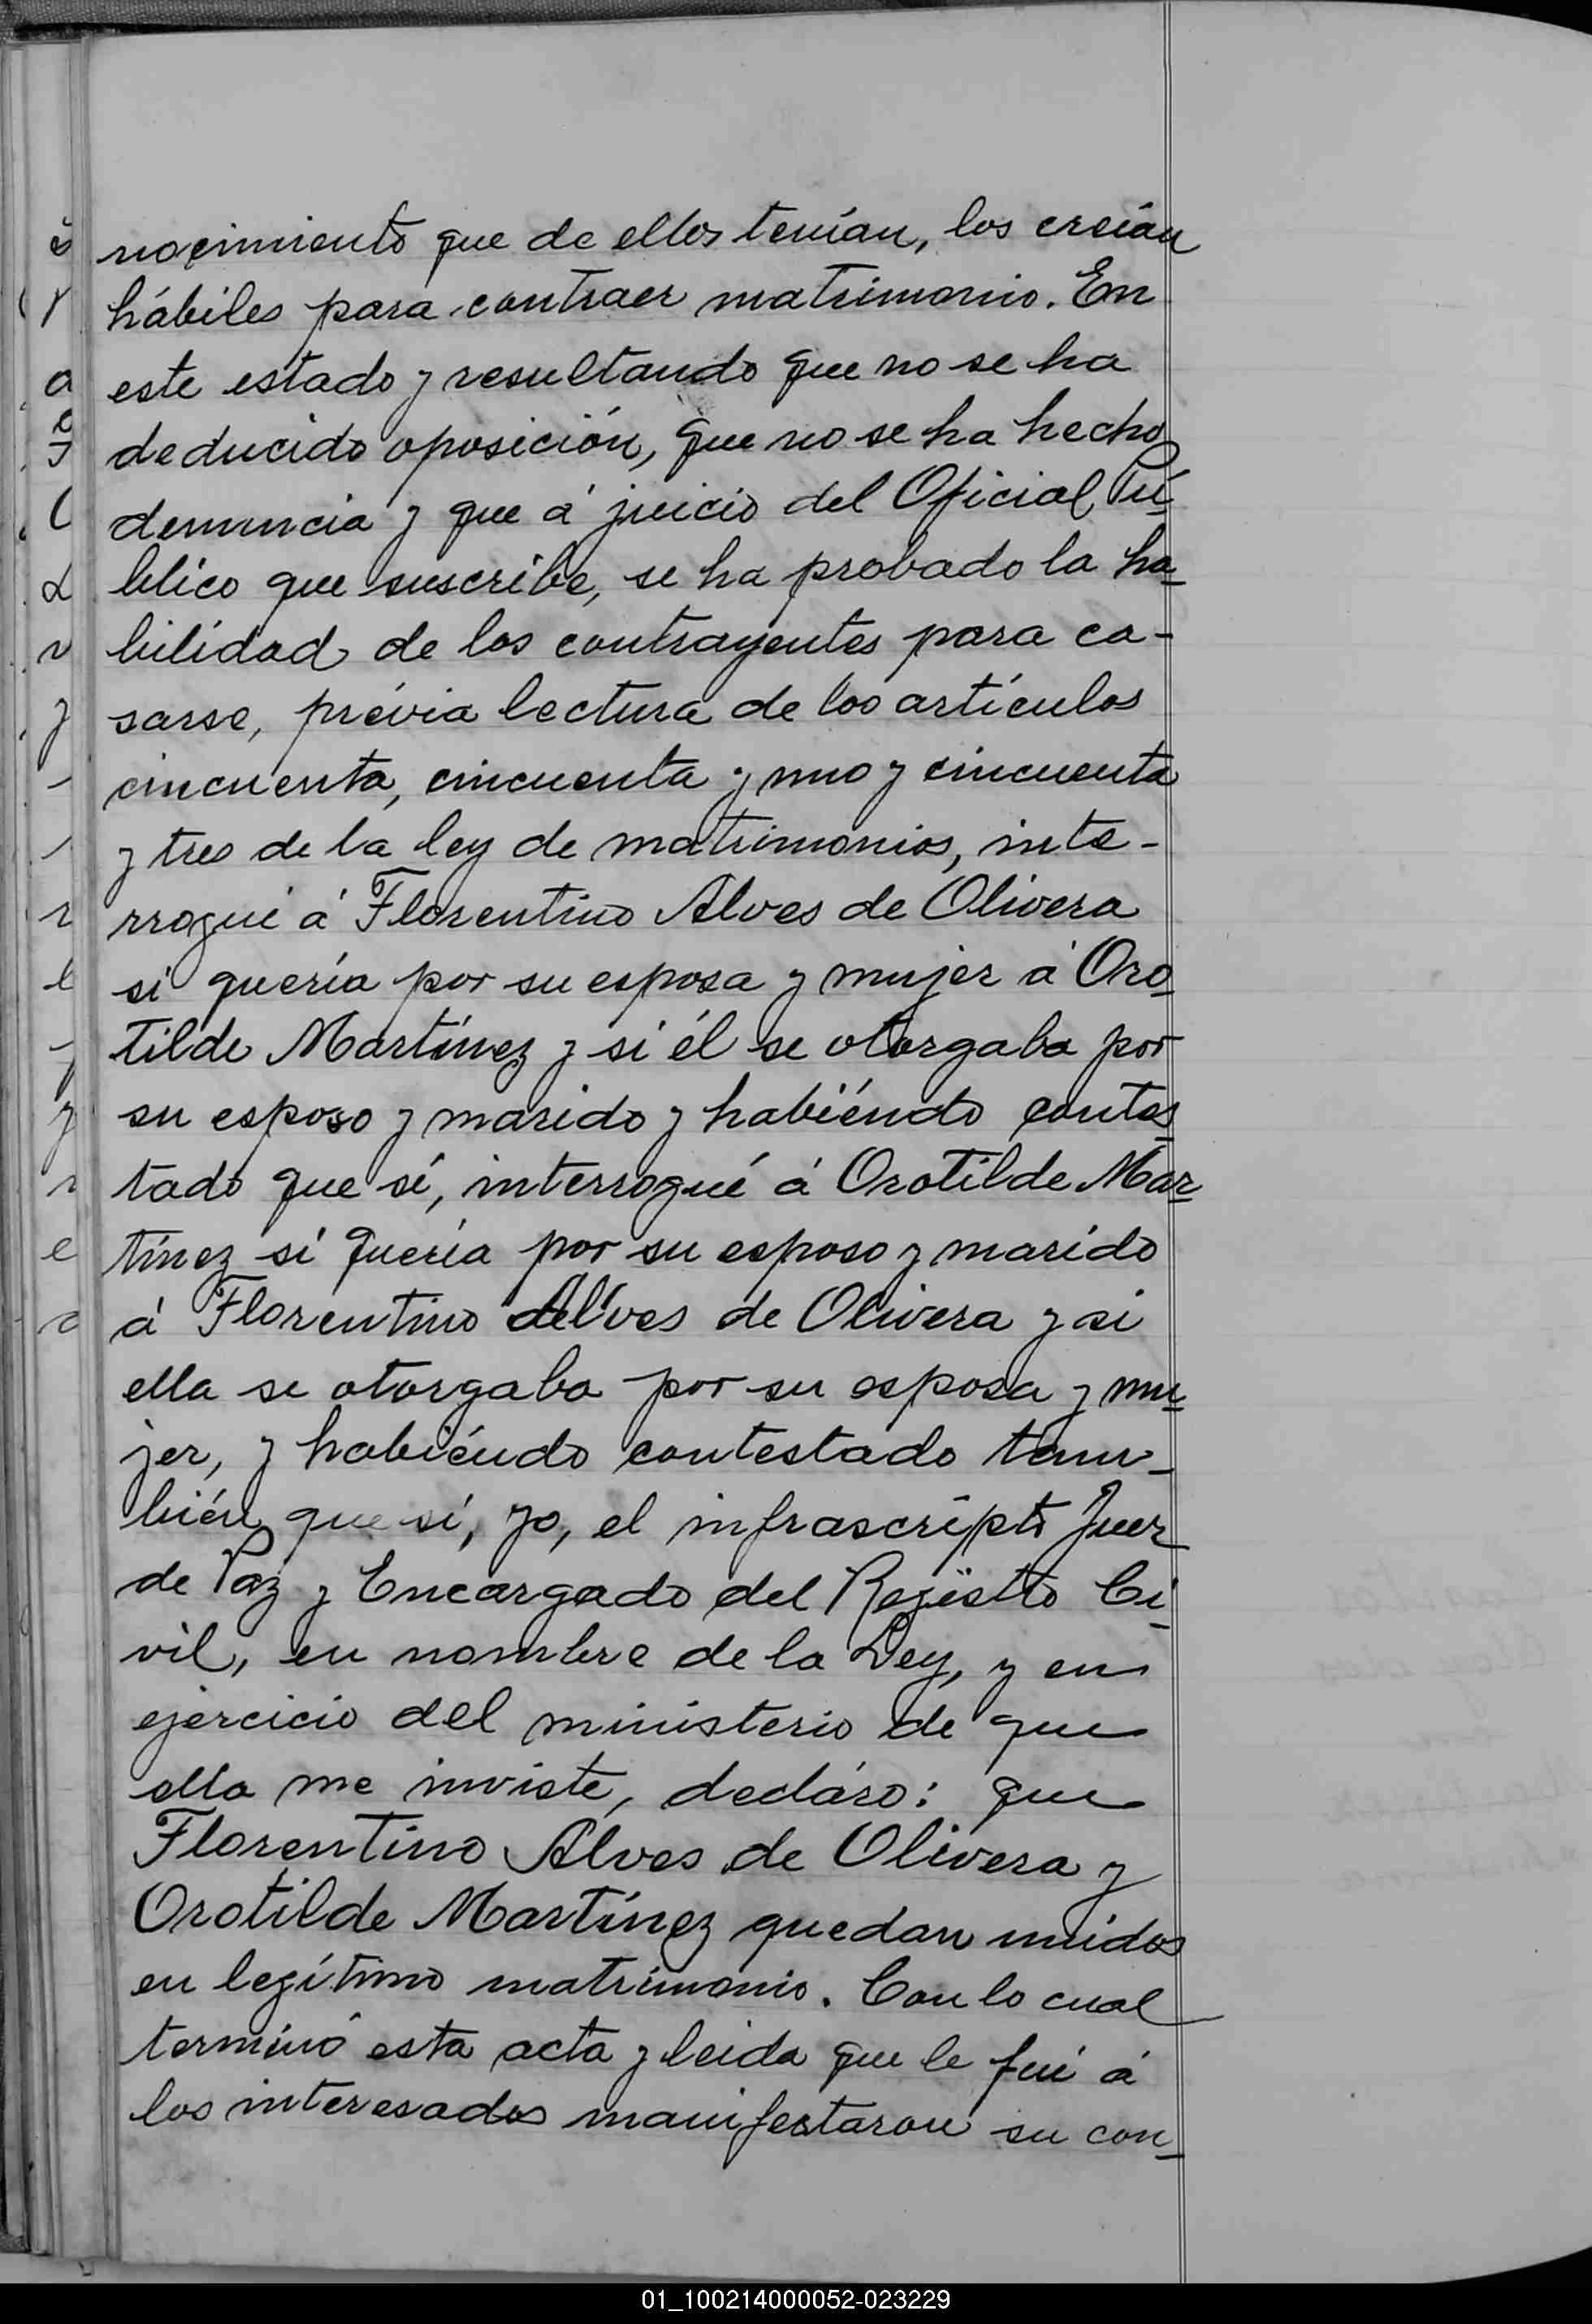 nocimiento que de ellos tenían, los creían
hábiles para contraer matrimonio. En
este estado y resultando que no se ha
deducido oposición, que no se ha hecho
denuncia y que á juicio del Oficial Pú-
blico que suscribe, se ha probado la ha-
bilidad de los contrayentes para ca-
sarse, prévia lectura de los artículos
cincuenta, cincuenta y uno y cincuenta
y tres de la ley de matrimonios, inte-
rrogué á Florentino Alves de Olivera
si quería por su esposa y mujer á Oro-
tilde Martínez y si él se otorgaba por
su esposo y marido y habiéndo contes-
tado que sí, interrogué á Orotilde Mar-
tínez si quería por su esposo y marido
á Florentino Alves de Olivera y si
ella se otorgaba por su esposa y mu-
jer, y habiéndo contestado tam-
bién que sí, yo, el infrascripto Juez
de Paz y Encargado del Registro Ci-
vil, en nombre de la Ley, y en
ejercicio del ministerio de que
ella me inviste, decláro: que
Florentino Alves de Olivera y
Orotilde Martínez quedan unidos
en legítimo matrimonio. Con lo cual
terminó esta acta y leida que le fué á
los interesados manifestaron su con-
01_100214000052-023229